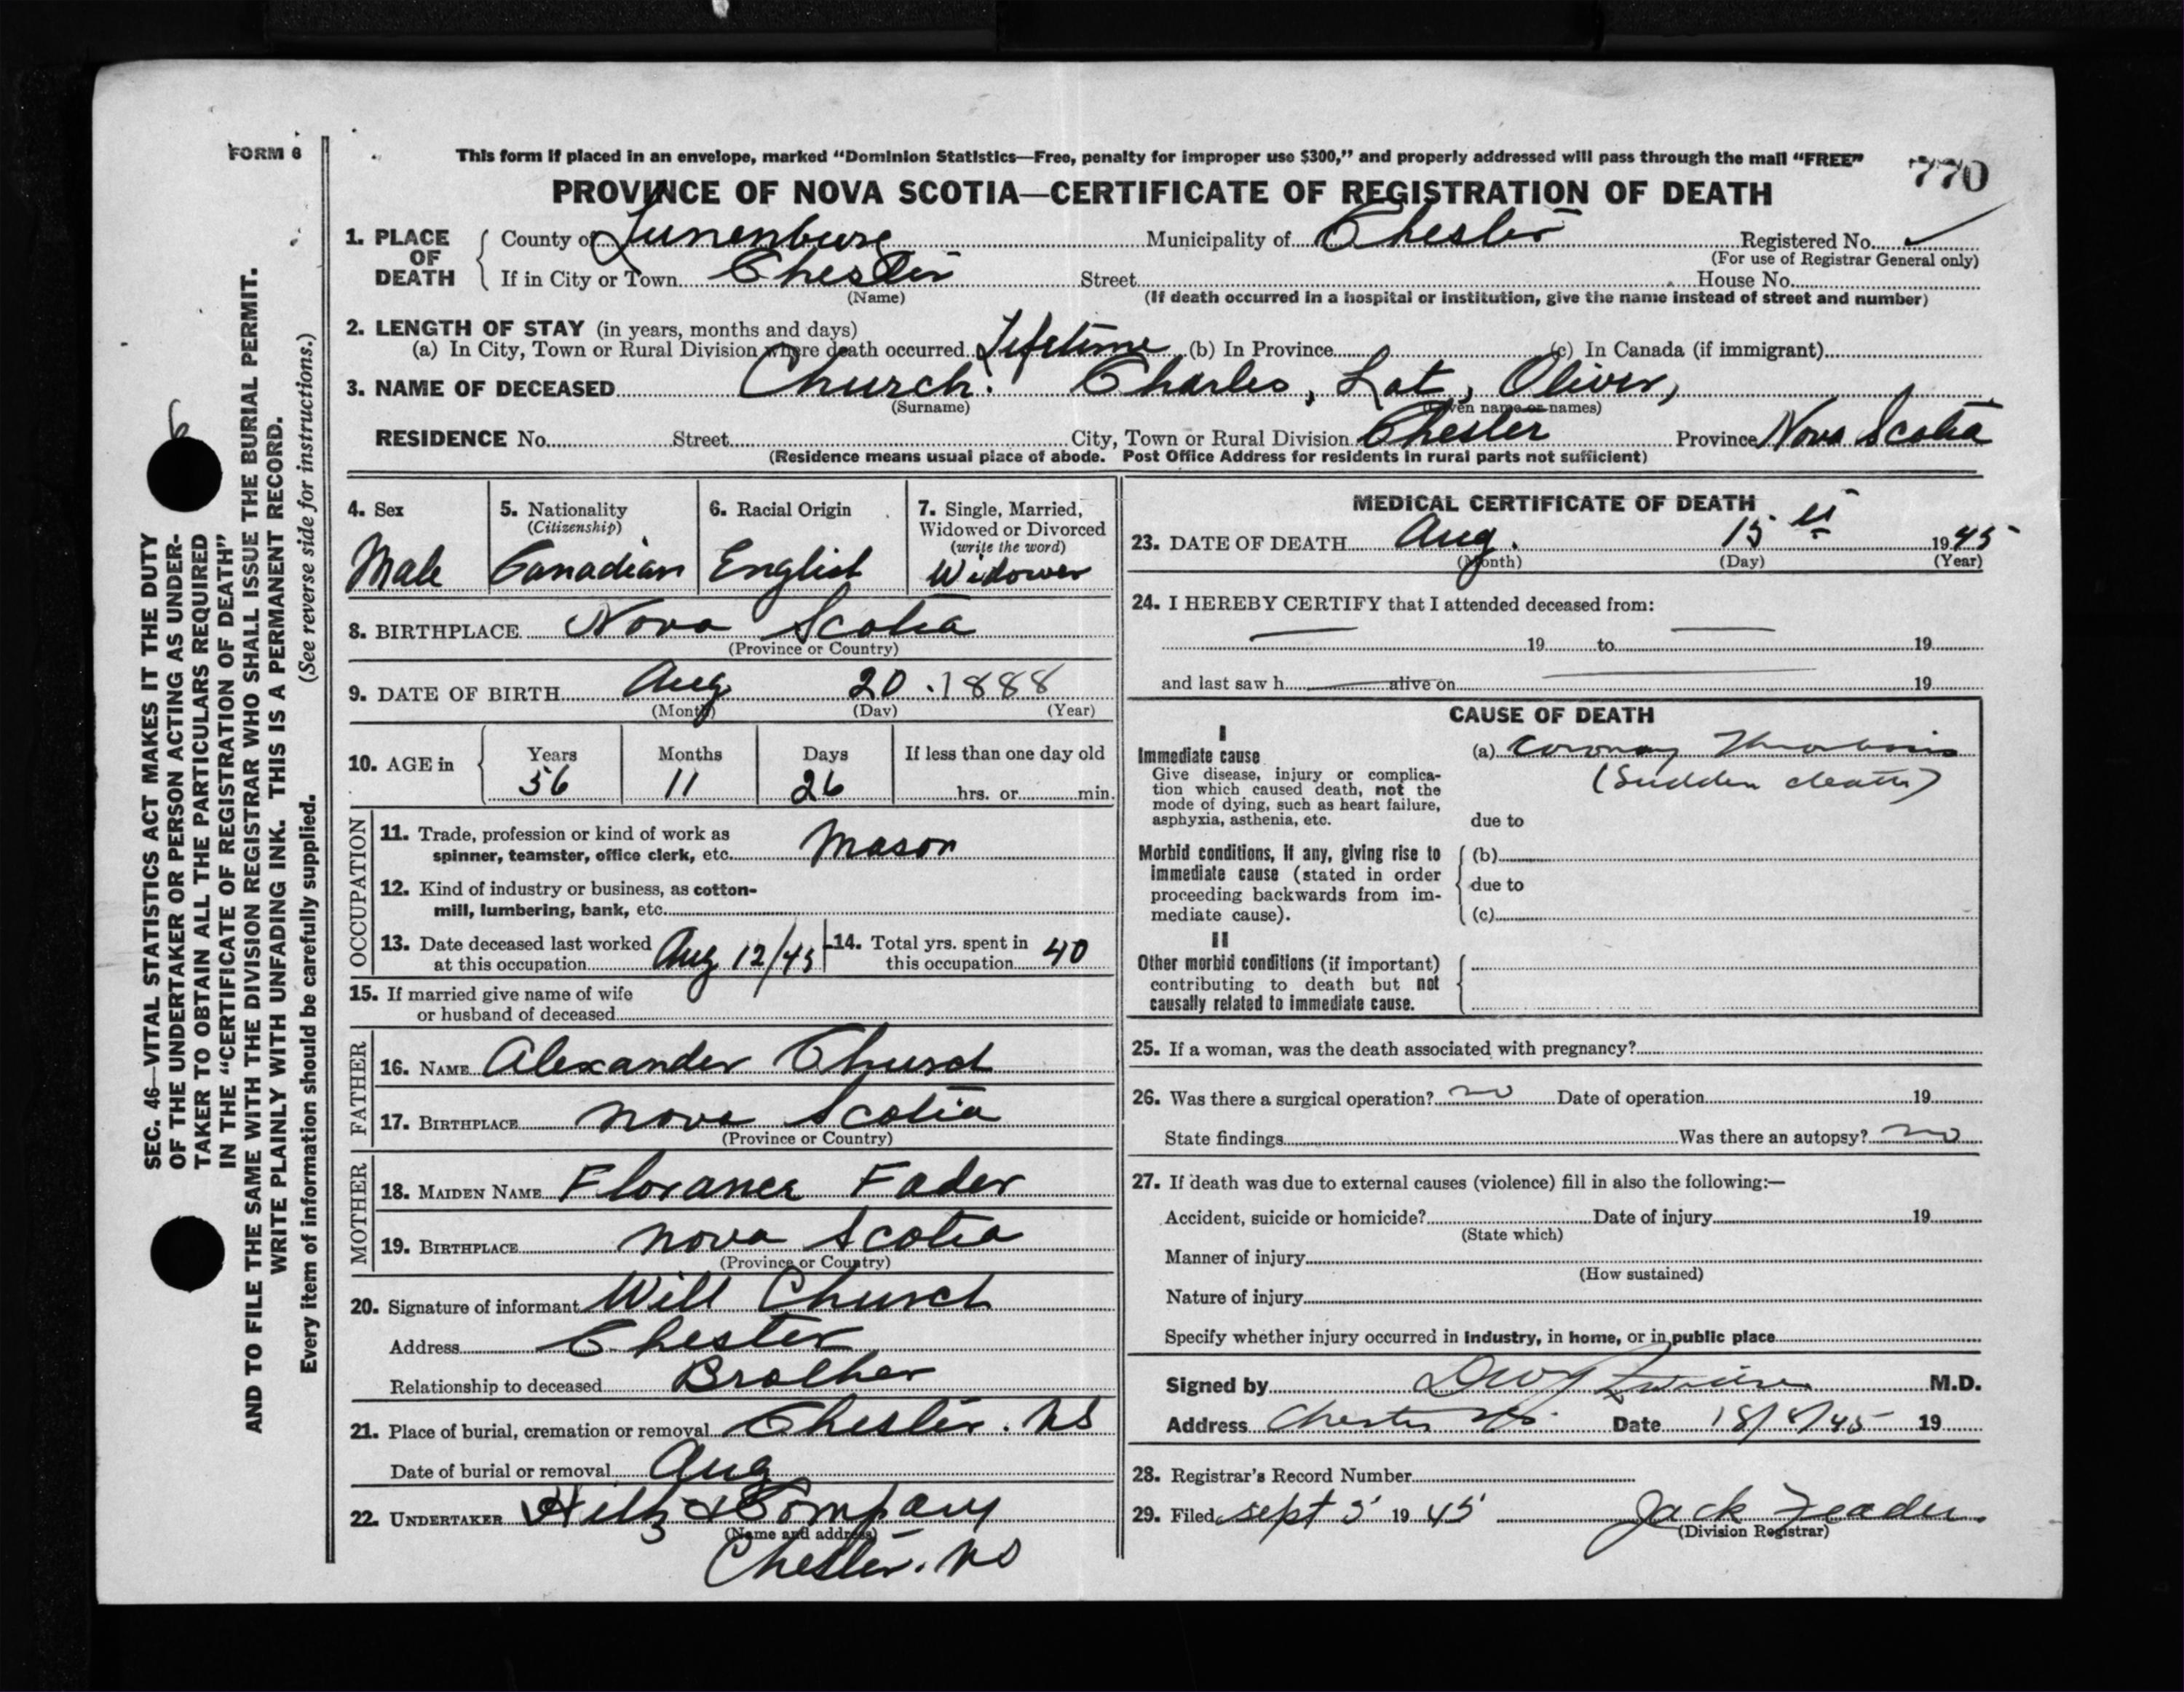 FORM 6
This form if placed in an envelope, marked "Dominion Statistics—Free, penalty for improper use $300," and properly addressed will pass through the mail "FREE"
770
PROVINCE OF NOVA SCOTIA—CERTIFICATE OF REGISTRATION OF DEATH
1. PLACE OF DEATH
County of Lunenburg Municipality of Chester Registered No.
(For use of Registrar General only)
If in City or Town Chester Street House No.
(Name) (If death occurred in a hospital or institution, give the name instead of street and number)
2. LENGTH OF STAY (in years, months and days)
(a) In City, Town or Rural Division where death occurred Lifetime (b) In Province (c) In Canada (if immigrant)
3. NAME OF DECEASED Church. Charles, Lot, Oliver,
(Surname) (Given name or names)
RESIDENCE No. Street City, Town or Rural Division Chester Province Nova Scotia
(Residence means usual place of abode. Post Office Address for residents in rural parts not sufficient)
4. Sex
Male
5. Nationality
(Citizenship)
Canadian
6. Racial Origin
English
7. Single, Married,
Widowed or Divorced
(write the word)
Widower
8. BIRTHPLACE Nova Scotia
(Province or Country)
9. DATE OF BIRTH Aug 20. 1888
(Month) (Day) (Year)
10. AGE in
Years Months Days If less than one day old
56 11 26 hrs. or min.
OCCUPATION
11. Trade, profession or kind of work as
spinner, teamster, office clerk, etc. Mason
12. Kind of industry or business, as cotton-
mill, lumbering, bank, etc.
13. Date deceased last worked
at this occupation Aug 12/45
14. Total yrs. spent in
this occupation 40
15. If married give name of wife
or husband of deceased
FATHER
16. NAME Alexander Church
17. BIRTHPLACE Nova Scotia
(Province or Country)
MOTHER
18. MAIDEN NAME Florance Fader
19. BIRTHPLACE Nova Scotia
(Province or Country)
20. Signature of informant Will Church
Address Chester
Relationship to deceased Brother
21. Place of burial, cremation or removal Chester. NS
Date of burial or removal Aug
22. UNDERTAKER Hiltz & Company
(Name and address)
Chester. NS
MEDICAL CERTIFICATE OF DEATH
23. DATE OF DEATH Aug. 15 1945
(Month) (Day) (Year)
24. I HEREBY CERTIFY that I attended deceased from:
19 to 19
and last saw h alive on 19
CAUSE OF DEATH
I
Immediate cause
Give disease, injury or complica-
tion which caused death, not the
mode of dying, such as heart failure,
asphyxia, asthenia, etc.
(a) Coronary Thrombosis
(Sudden death)
due to
Morbid conditions, if any, giving rise to
immediate cause (stated in order
proceeding backwards from im-
mediate cause).
(b)
due to
(c)
II
Other morbid conditions (if important)
contributing to death but not
causally related to immediate cause.
25. If a woman, was the death associated with pregnancy?
26. Was there a surgical operation? no Date of operation 19
State findings Was there an autopsy? no
27. If death was due to external causes (violence) fill in also the following:—
Accident, suicide or homicide? Date of injury 19
(State which)
Manner of injury
(How sustained)
Nature of injury
Specify whether injury occurred in industry, in home, or in public place
Signed by M.D.
Address Chester NS. Date 18/8/45 19
28. Registrar's Record Number
29. Filed Sept 5 1945 Jack
(Division Registrar)
SEC. 46—VITAL STATISTICS ACT MAKES IT THE DUTY
OF THE UNDERTAKER OR PERSON ACTING AS UNDER-
TAKER TO OBTAIN ALL THE PARTICULARS REQUIRED
IN THE "CERTIFICATE OF REGISTRATION OF DEATH"
AND TO FILE THE SAME WITH THE DIVISION REGISTRAR WHO SHALL ISSUE THE BURIAL PERMIT.
WRITE PLAINLY WITH UNFADING INK. THIS IS A PERMANENT RECORD.
Every item of information should be carefully supplied. (See reverse side for instructions.)
6